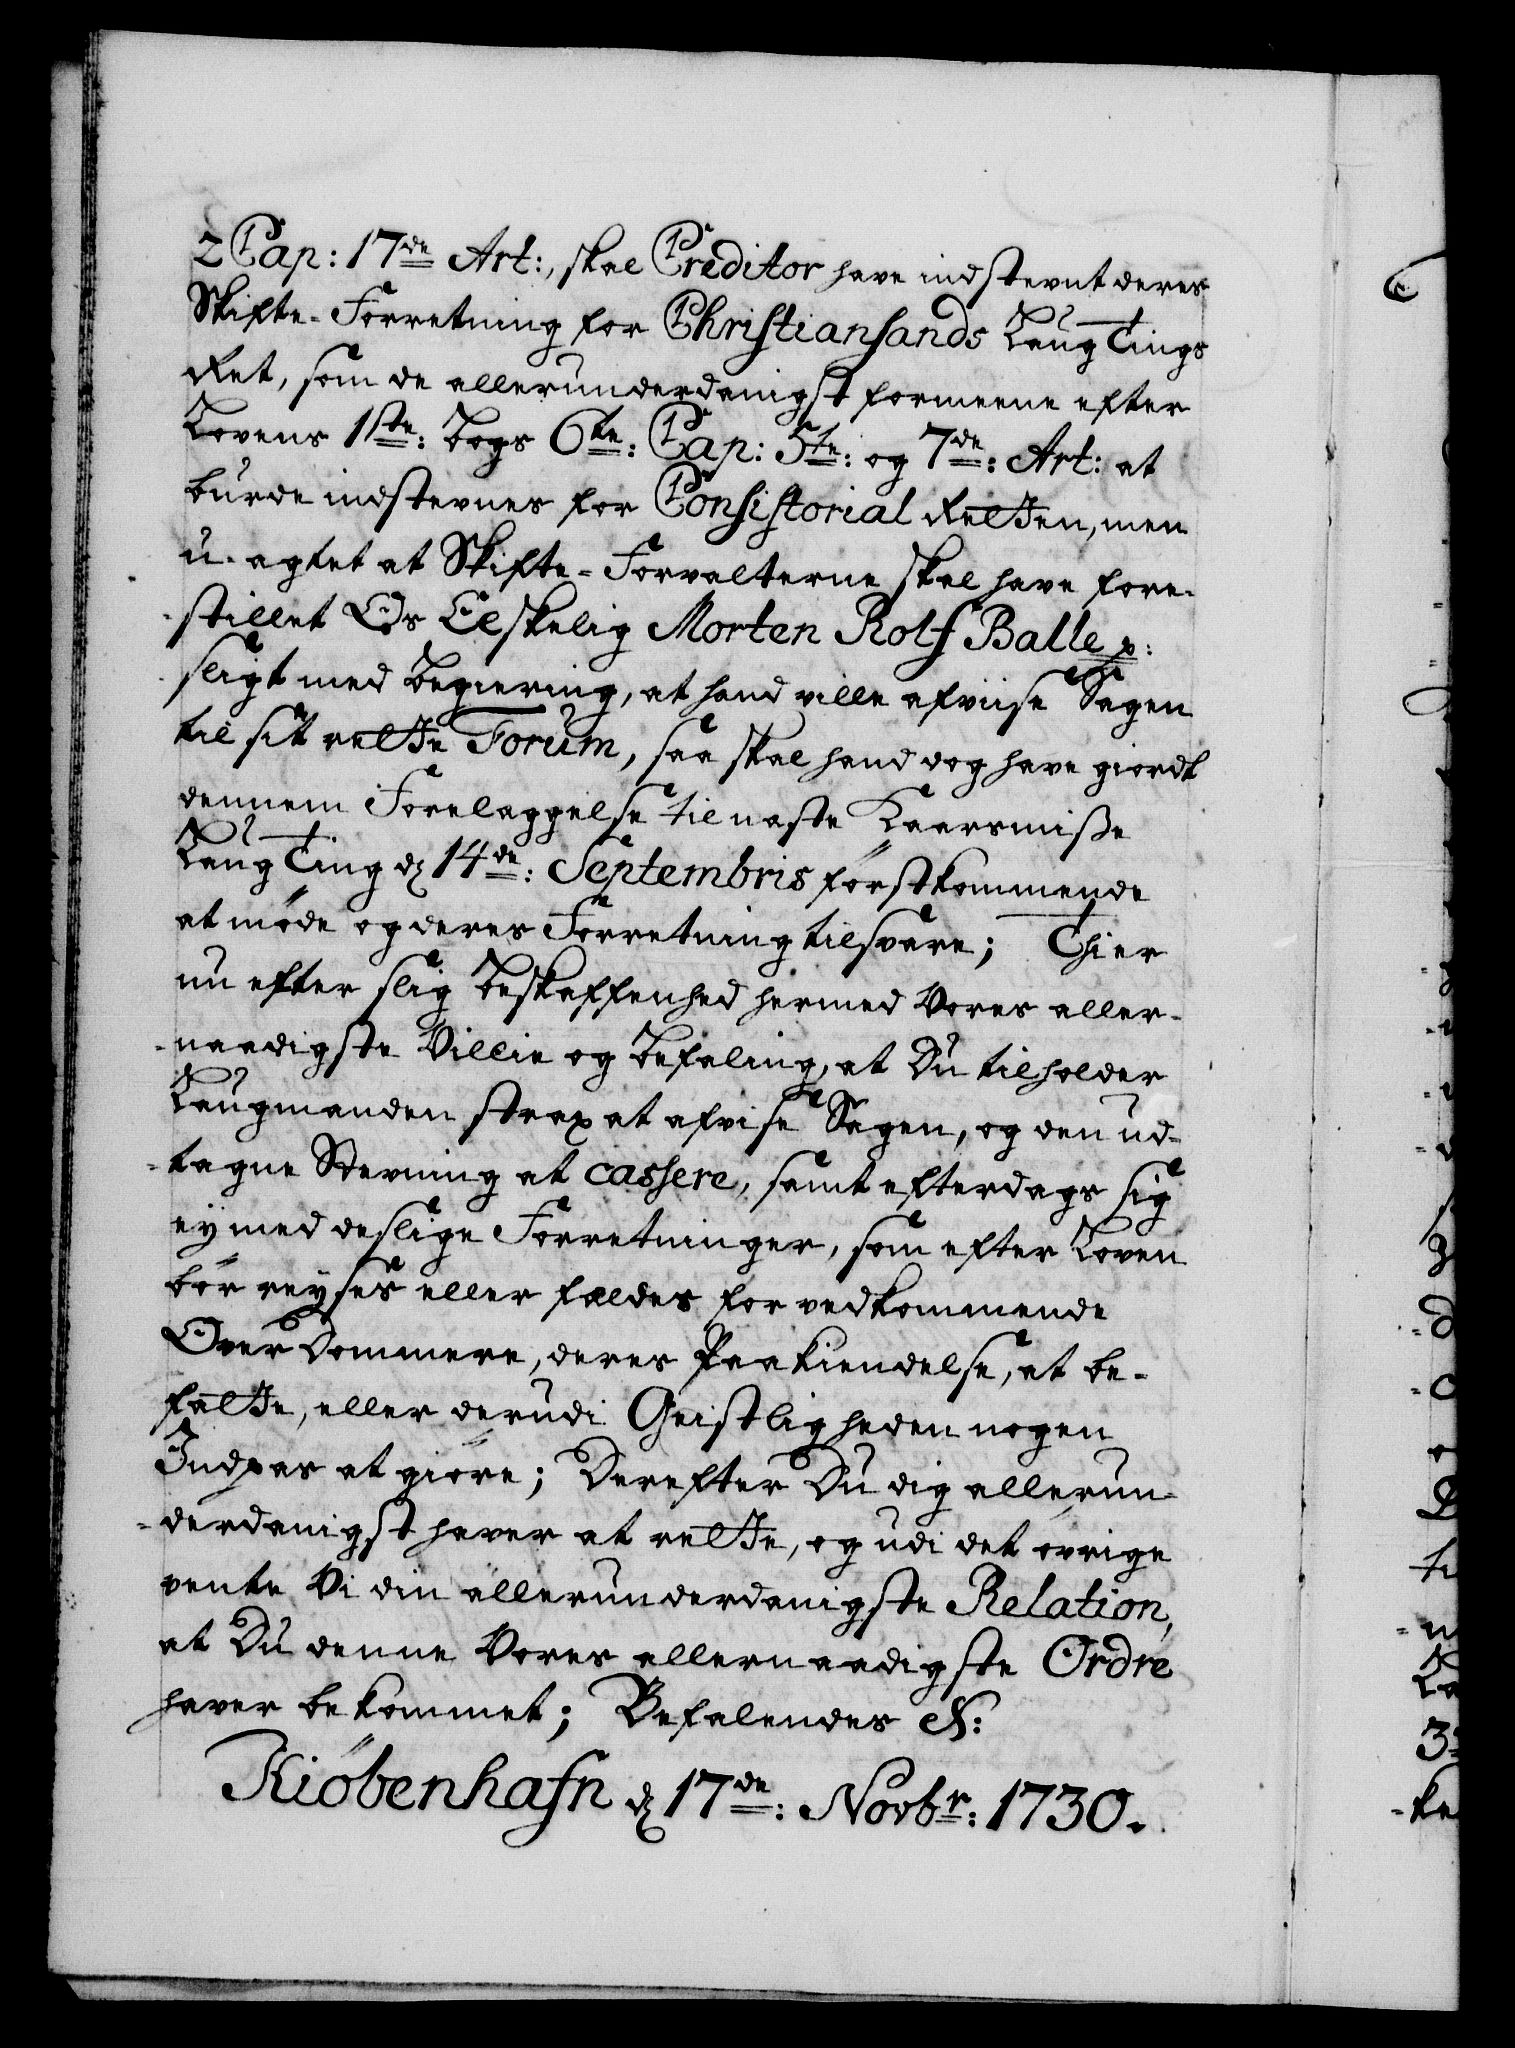 2 Cap: 17de Art:, skal Creditor have indstevnt deres
Skifte-Forretning for Christiansands Laug Tings
Ret, som de allerunderdanigst formeene efter
Lovens 1ste: Bogs 6te: Cap: 5te: og 7de: Art: at
burde indstevnes for Consistorial Retten, men
u-agtet at Skifte-Forvalterne skal have fore-
-stillet Os Elskelig Morten Rolfs Balle p:
sligt med Begiering, at hand ville afviise Sagen
til sit rette Forum, saa skal hand dog have giordt
dennem Forelæggelse til næste Kaarsmisse
Laug Ting d 14de: Septembris förstkommende
at möde og deres Forretning tilsvare; Thi er
nu efter slig Beskaffenhed hermed Vores aller-
-naadigste Villie og Befaling, at Du tilholder
Laugmanden strax at afvise Sagen, og den ud-
-tagne Stevning at cassere, samt efterdags sig
ey med deslige Forretninger, som efter Loven
bör reyses eller fældes for vedkommende
Over Dommere, deres Paakiendelse, at be-
fatte, eller derudi Geistligheden nogen
Indpas at giöre; Derefter Du dig allerun-
-derdanigst haver at rette, og udi det ovrige
vente Vi din allerunderdanigste Relation,
at Du denne Vores allernaadigste Ordre
haver bekommet; Befalendes &:
Kiöbenhafn d 17de: Novbr: 1730.